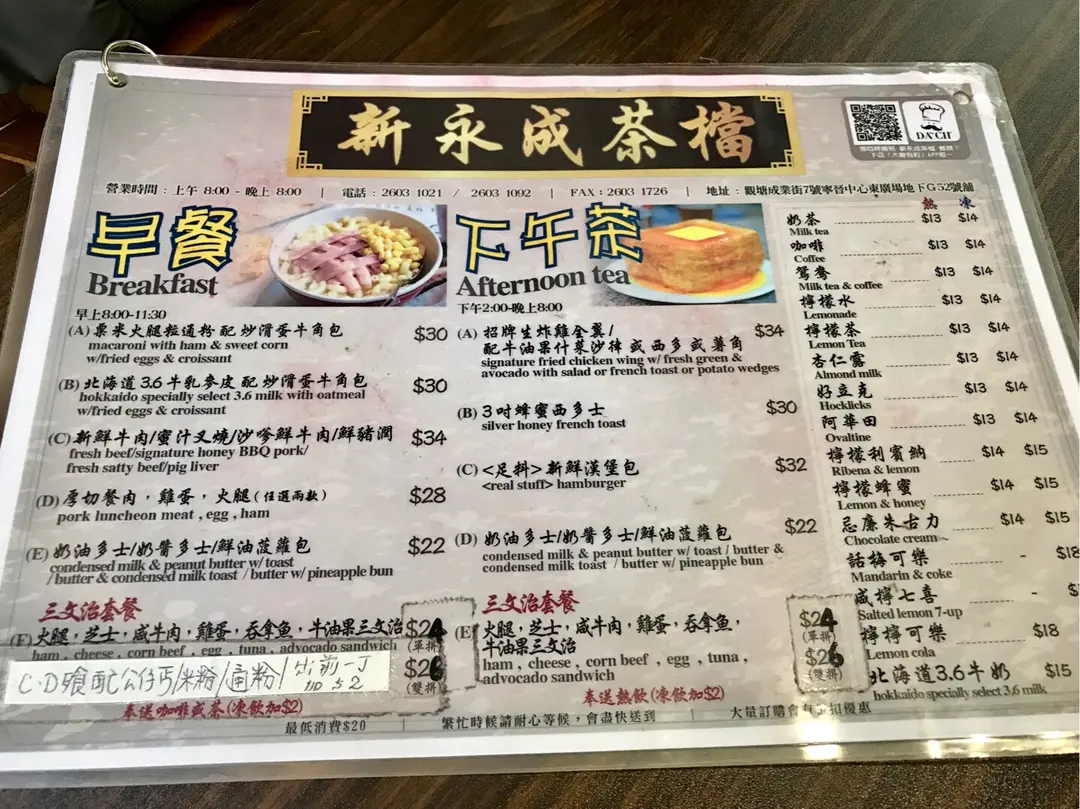 新永成茶檔
DA'CH
營業時間:上午 8:00 - 晚上 8:00 | 電話:2603 1021 / 2603 1092 | FAX:2603 1726 | 地址:觀塘成業街7號寧晉中心東廣場地下G52號舖
早餐
Breakfast
早上8:00-11:30
(A) 粟米火腿粒通粉 配 炒滑蛋牛角包 $30
macaroni with ham & sweet corn
w/fried eggs & croissant
(B) 北海道 3.6 牛乳麥皮 配 炒滑蛋牛角包 $30
hokkaido specially select 3.6 milk with oatmeal
w/fried eggs & croissant
(C) 新鮮牛肉/蜜汁叉燒/沙嗲鮮牛肉/鮮豬潤 $34
fresh beef/signature honey BBQ pork/
fresh satty beef/pig liver
(D) 厚切餐肉,雞蛋,火腿(任選兩款) $28
pork luncheon meat , egg , ham
(E) 奶油多士/奶醬多士/鮮油菠蘿包 $22
condensed milk & peanut butter w/ toast
/ butter & condensed milk toast / butter w/ pineapple bun
三文治套餐
(F) 火腿,芝士,咸牛肉,雞蛋,吞拿魚,牛油果三文治 $24
(單拼)
ham , cheese , corn beef , egg , tuna , advocado sandwich
$26
(雙拼)
C.D餐配公仔丐/米粉/通粉/出前一丁
加 $2
奉送咖啡或茶(凍飲加$2)
下午茶
Afternoon tea
下午2:00-晚上8:00
(A) 招牌生炸雞全翼/ $34
配牛油果什菜沙律 或 西多 或 薯角
signature fried chicken wing w/ fresh green &
avocado with salad or french toast or potato wedges
(B) 3吋蜂蜜西多士 $30
silver honey french toast
(C) <足料>新鮮漢堡包 $32
<real stuff> hamburger
(D) 奶油多士/奶醬多士/鮮油菠蘿包 $22
condensed milk & peanut butter w/ toast / butter &
condensed milk toast / butter w/ pineapple bun
三文治套餐
(E) 火腿,芝士,咸牛肉,雞蛋,吞拿魚, $24
牛油果三文治 (單拼)
ham , cheese , corn beef , egg , tuna , $26
advocado sandwich (雙拼)
奉送熱飲(凍飲加$2)
熱 凍
奶茶 $13 $14
Milk tea
咖啡 $13 $14
Coffee
鴛鴦 $13 $14
Milk tea & coffee
檸檬水 $13 $14
Lemonade
檸檬茶 $13 $14
Lemon Tea
杏仁露 $13 $14
Almond milk
好立克 $13 $14
Hocklicks
阿華田 $13 $14
Ovaltine
檸檬利賓納 $14 $15
Ribena & lemon
檸檬蜂蜜 $14 $15
Lemon & honey
忌廉朱古力 $14 $15
Chocolate cream
話梅可樂 - $18
Mandarin & coke
咸檸七喜 - $
Salted lemon 7-up
檸檸可樂 $18
Lemon cola
北海道3.6牛奶 $15
hokkaido specially select 3.6 milk
最低消費$20 | 繁忙時候請耐心等候,會盡快送到 | 大量訂購會有折扣優惠